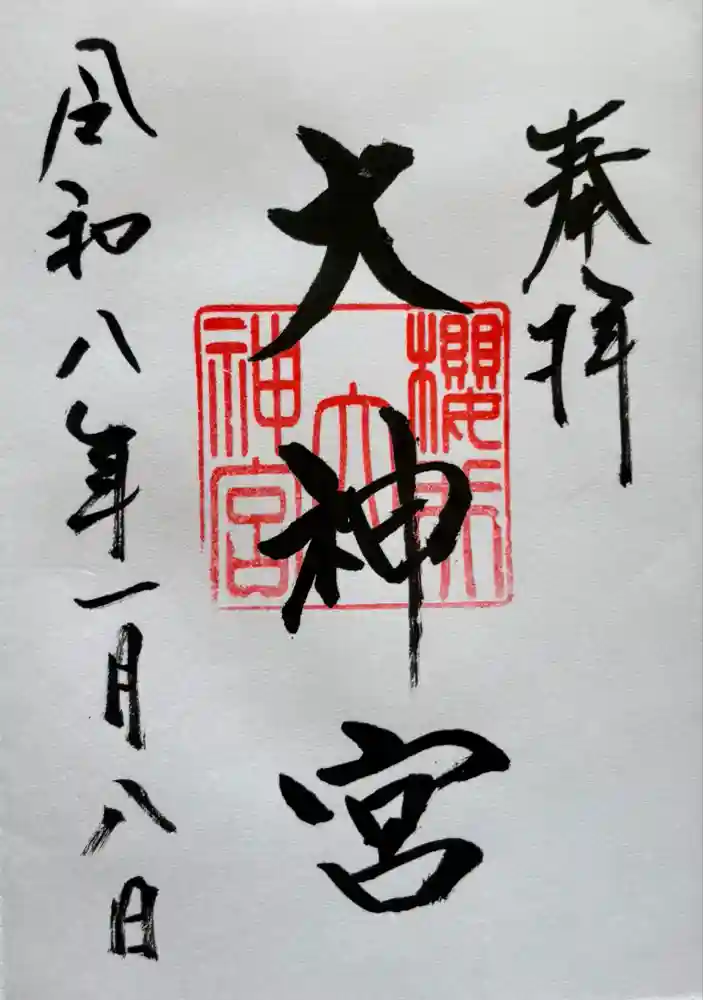 奉拝
大神宮
令和八年一月八日
櫻
大
神宮